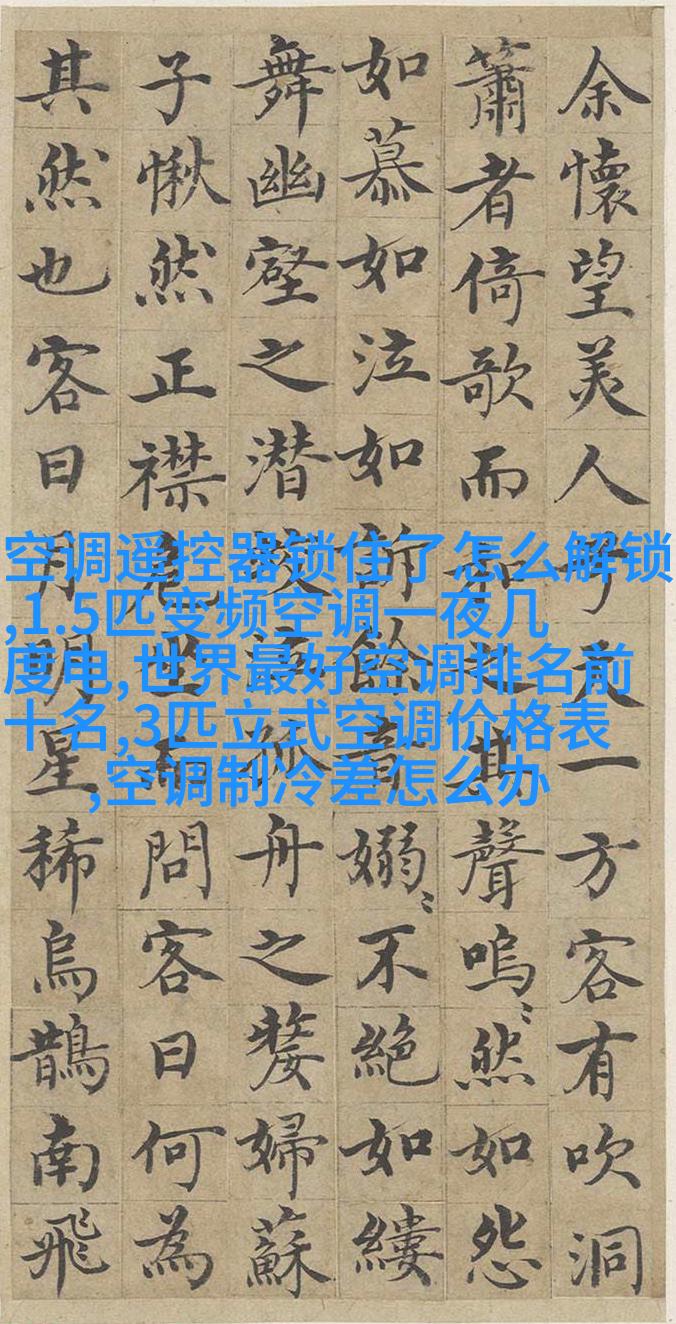 余懷望美人兮天一方客有吹洞
簫者倚歌而和之其聲嗚〻然如怨
如慕如泣如訴餘音嫋〻不絕如縷
舞幽壑之潛蛟泣孤舟之嫠婦蘇
子愀然正襟危坐而問客曰何為
其然也客曰月明星稀烏鵲南飛
空调遥控器锁住了怎么解锁
,1.5匹变频空调一夜几
度电,世界最好空调排名前
十名,3匹立式空调价格表
,空调制冷差怎么办